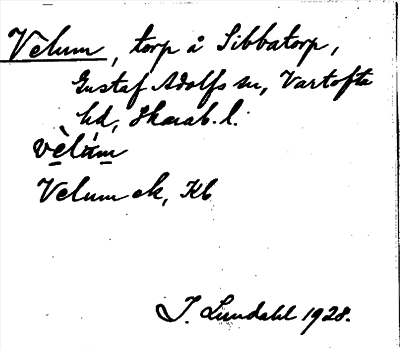 Velum, torp å Sibbatorp,
Gustaf Adolfs sn, Vartofta
hd, Skarab. l.
vèlúm
Velum ek, Kb
I. Lundahl 1928.